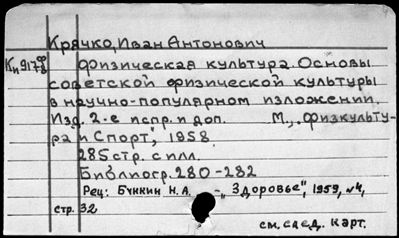 Крячко, Иван Антонович
Физическая культура. Основы
советской физической культуры
в научно-популярном изложении.
Изд. 2-е испр. и доп. М., „Физкульту-
ра и Спорт", 1958.
285 стр. с илл.
Библиогр. 280-282
Рец: Бункин Н.А. - „Здоровье", 1959, №4,
стр. 32
см. след. карт.